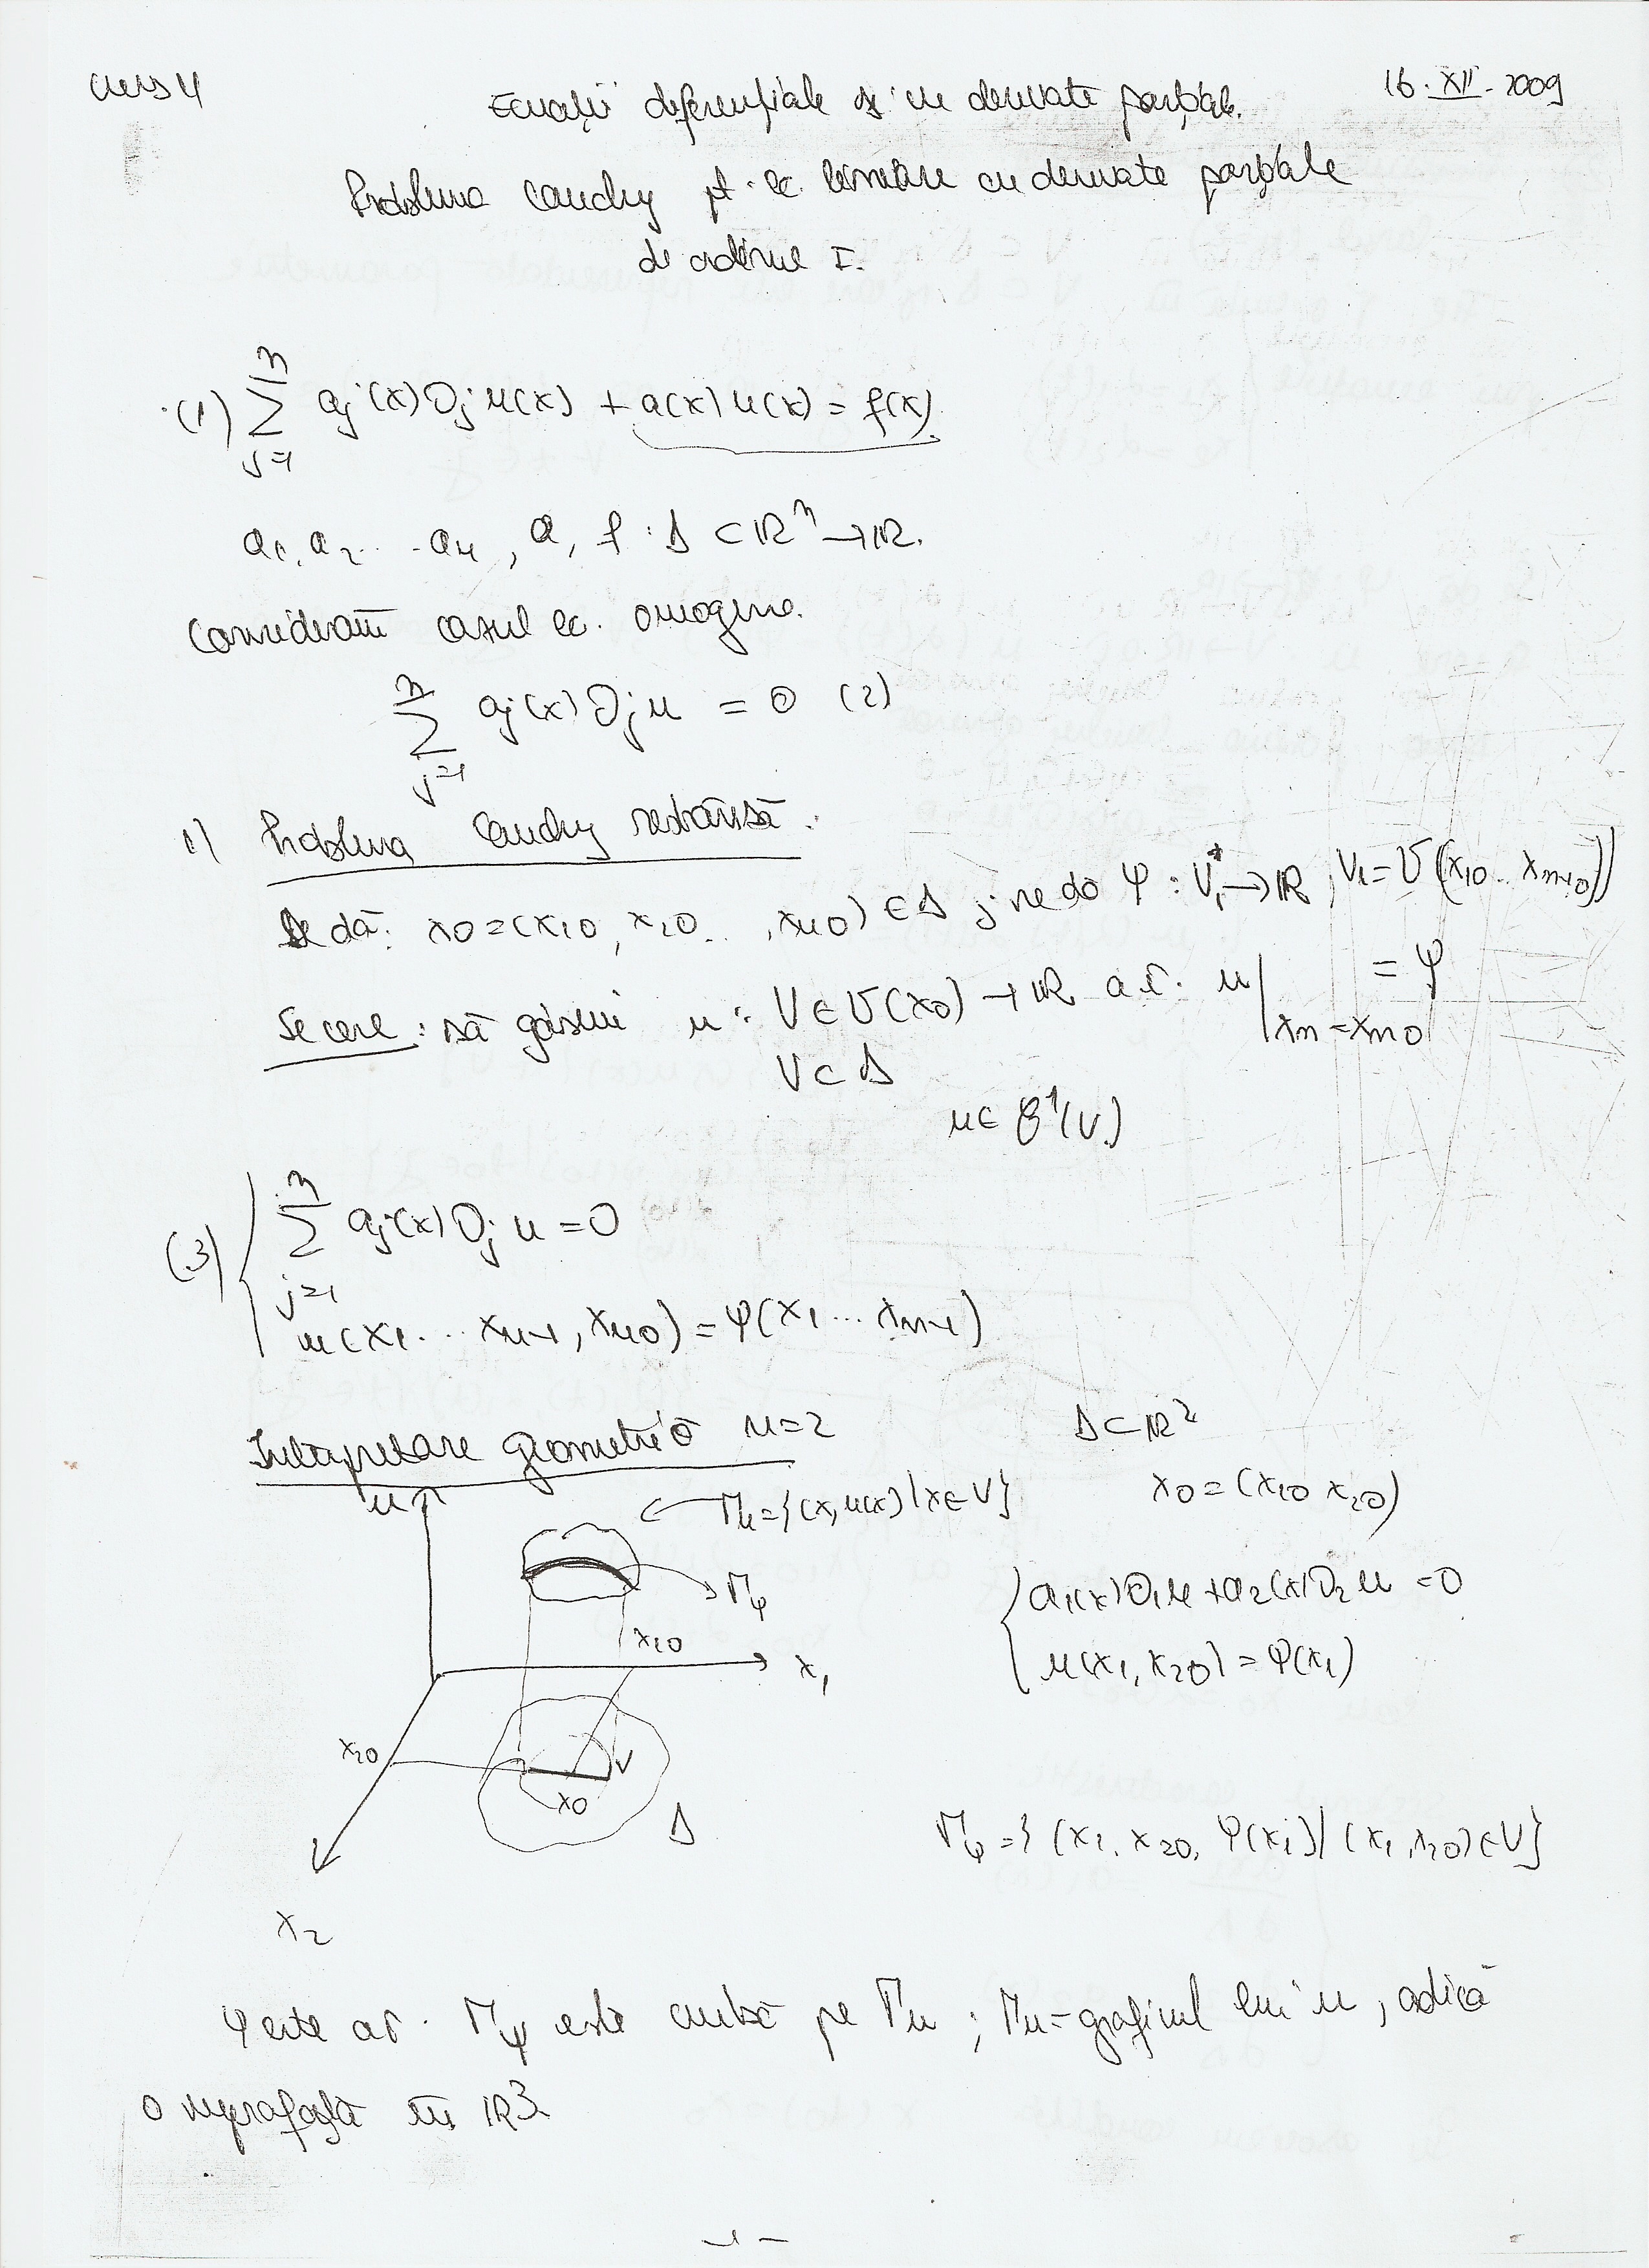 Curs 4
16. XII. 2009
Ecuații diferențiale și cu derivate parțiale.
Problema Cauchy pt. ec. liniare cu derivate parțiale
de ordinul I.
(1) ∑_{j=1}^{n} aj(x) Dj u(x) + a(x) u(x) = f(x)
a1, a2 ... an, a, f : Δ ⊂ ℝ^n → ℝ.
Considerăm cazul ec. omogene.
∑_{j=1}^{n} aj(x) Dj u = 0 (2)
1) Problema Cauchy restrânsă:
Se dă: x0 = (x10, x20 .., xn0) ∈ Δ; se dă φ : V1 → ℝ, V1 = V(x10 .. xn-10)
Se cere: să găsim u : V ∈ V(x0) → ℝ a.î. u|xn = xn0 = φ
V ⊂ Δ
u ∈ C^1(V)
(3) { ∑_{j=1}^{n} aj(x) Dj u = 0
u(x1 ... xn-1, xn0) = φ(x1 ... xn-1)
Interpretare geometrică n=2
Δ ⊂ ℝ^2
x0 = (x10 x20)
u
Γu = {(x, u(x)) | x ∈ V}
Γφ
{ a1(x) D1u + a2(x) D2u = 0
u(x1, x20) = φ(x1)
x10
x1
x20
V
x0
Δ
x2
Γφ = { (x1, x20, φ(x1)) | (x1, x20) ∈ V}
φ este aî. Γφ este curbă pe Γu ; Γu = graficul lui u, adică
o suprafață în ℝ^3
- 1 -